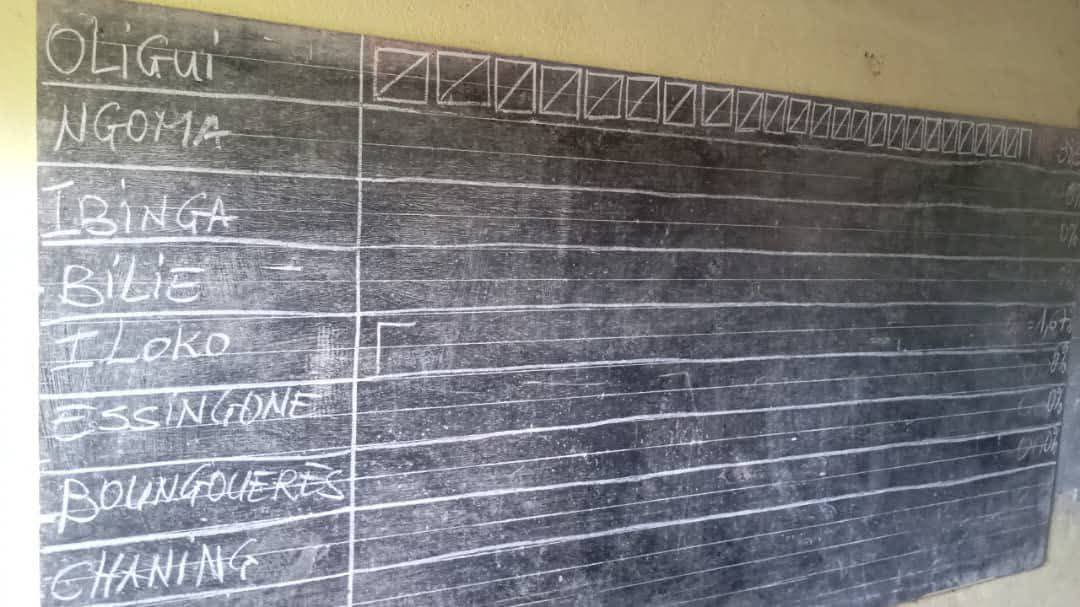 OLiGui
NGOMA
IBiNGA
BiLiE
ILOKO
ESSiNGONE
0%
BOUNGOUERÈS
CHANING